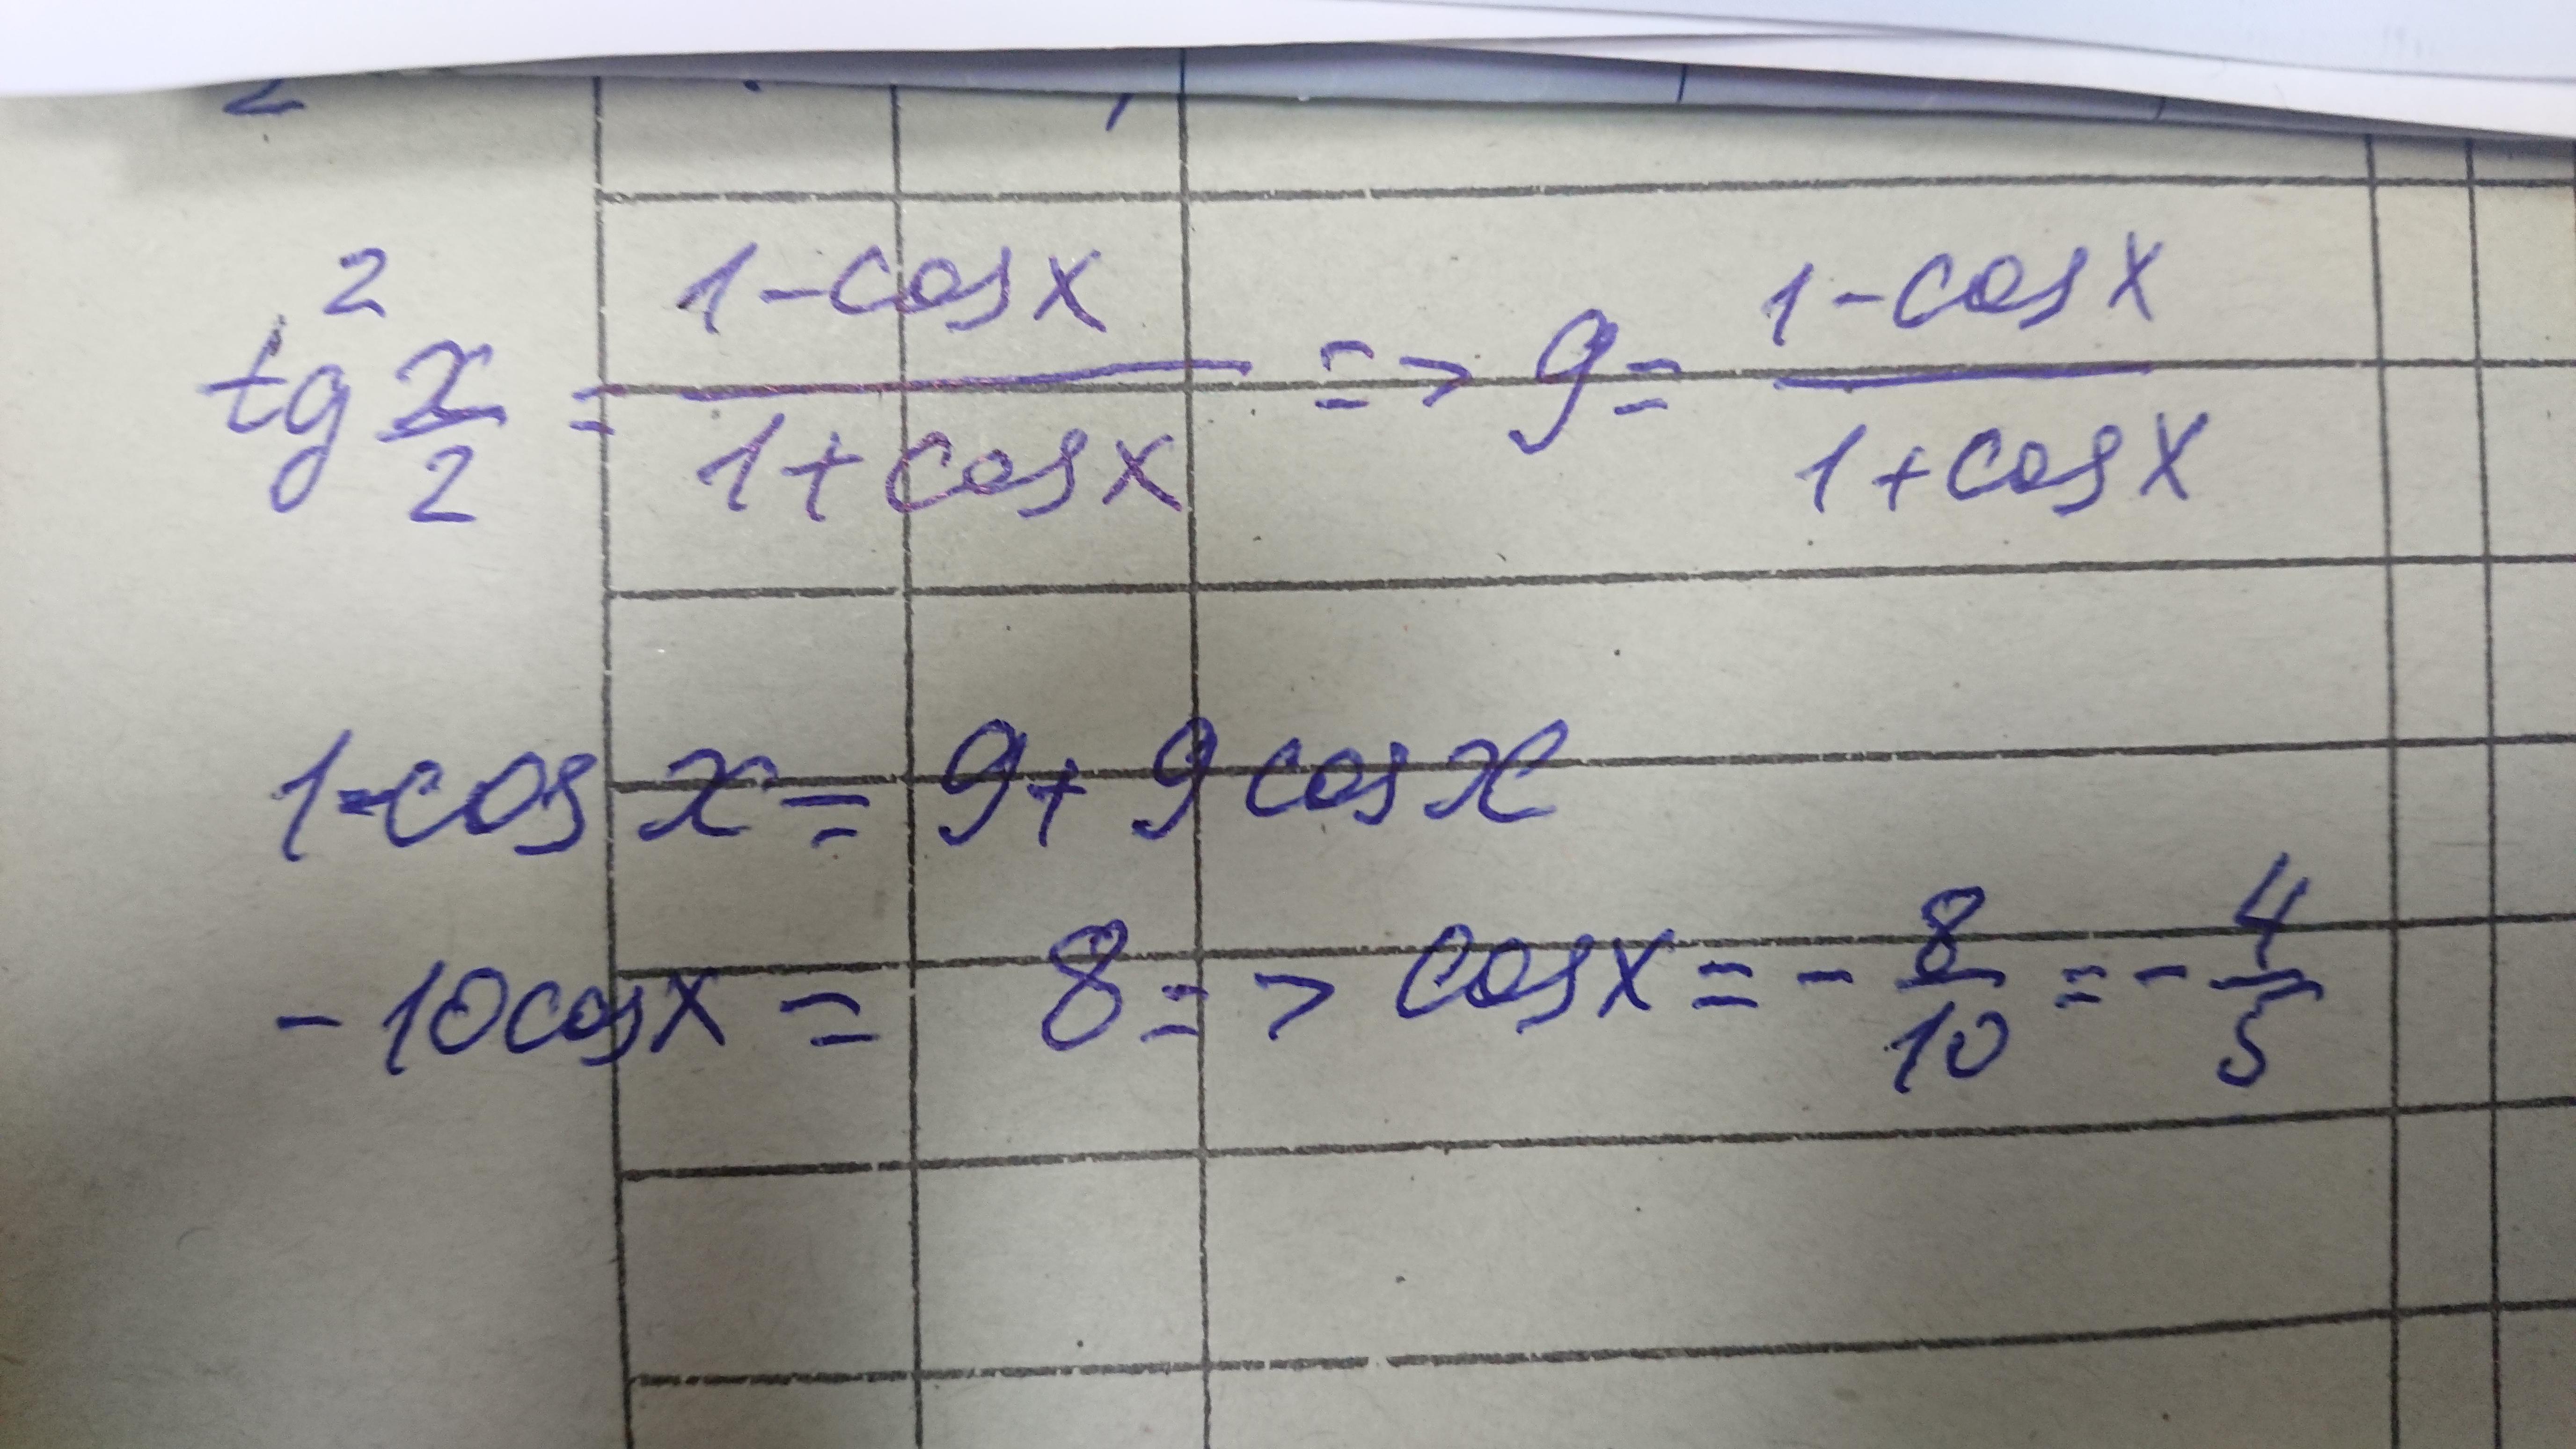 2
tg² x/2 = (1-cosx)/(1+cosx) => 9 = (1-cosx)/(1+cosx)
1-cos x = 9+ 9 cos x
-10cosx = 8 => cosx = - 8/10 = - 4/5